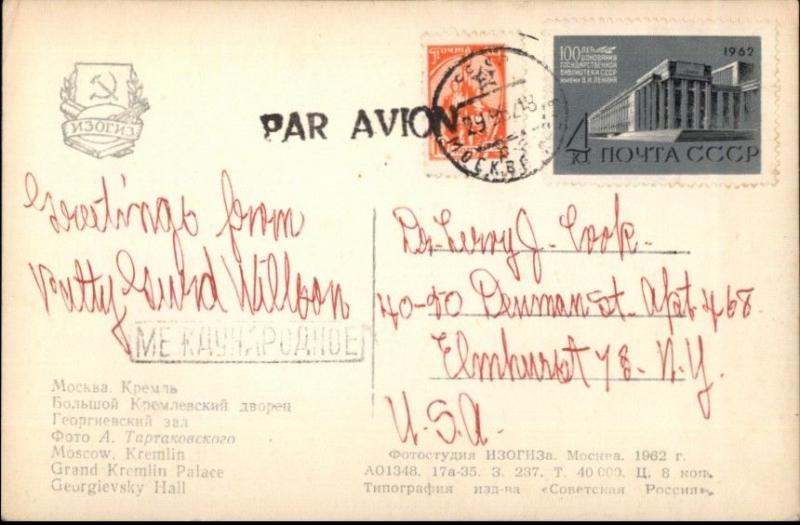 ИЗОГИЗ
PAR AVION
ПОЧТА
МОСКВА
100 ЛЕТ
ОСНОВАНИЯ
ГОСУДАРСТВЕННОЙ
БИБЛИОТЕКИ СССР
ИМЕНИ В.И.ЛЕНИНА
1962
4 К
ПОЧТА СССР
Greetings from
Patty Gurd Willson
МЕЖДУНАРОДНОЕ
Dr. Leroy J. Cook.
40-50 Denman St. Apt. 468.
Elmhurst 78. N.Y.
U.S.A.
Москва. Кремль
Большой Кремлевский дворец
Георгиевский зал
Фото А. Тартаковского
Moscow. Kremlin
Grand Kremlin Palace
Georgievsky Hall
Фотостудия ИЗОГИЗа. Москва. 1962 г.
А01348. 17а-35. З. 237. Т. 40 000. Ц. 8 коп.
Типография изд-ва «Советская Россия».